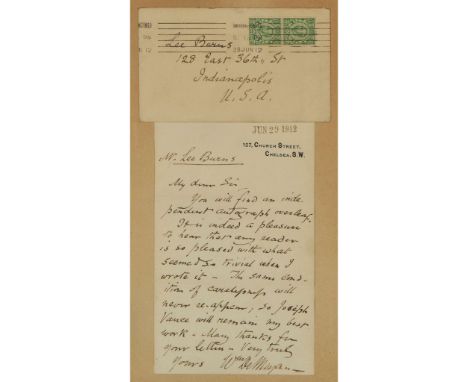 Lee Burns
128 East 36th St
Indianapolis
U. S. A.
JUN 29 1912
127, CHURCH STREET,
CHELSEA, S.W.
Mr. Lee Burns
My dear Sir
You will find an inde
pendent autograph overleaf.
It is indeed a pleasure
to hear that any reader
is so pleased with what
seemed so trivial when I
wrote it – The same cond-
ition of carelessness will
never re-appear, so Joseph
Vance will remain my best
work – Many thanks for
your letter – Very truly
yours Wm De Morgan